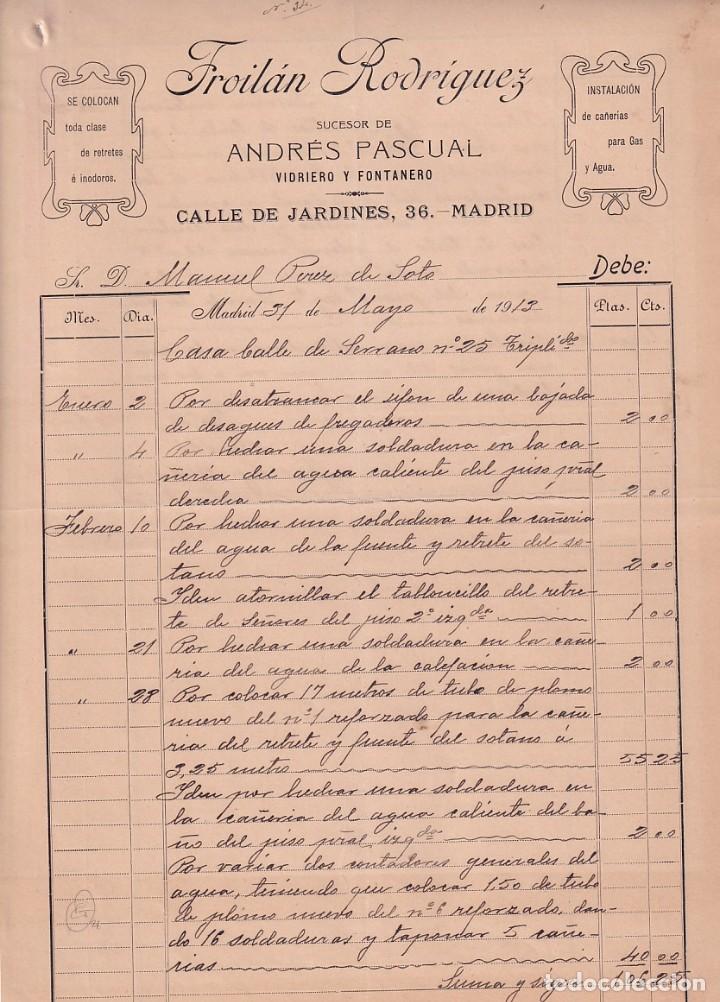 Nº 32.
Froilán Rodríguez
SUCESOR DE
ANDRÉS PASCUAL
VIDRIERO Y FONTANERO
CALLE DE JARDINES, 36.—MADRID
SE COLOCAN
toda clase
de retretes
é inodoros.
INSTALACIÓN
de cañerias
para Gas
y Agua.
Sr. D. Manuel Perez de Soto Debe:
Mes. Dia. Madrid 31 de Mayo de 1913 Ptas. Cts.
Casa Calle de Serrano nº 25 Tripli do
Enero 2 Por desatrancar el sifon de una bajada
de desagues de fregaderos 2 00
" 4 Por hechar una soldadura en la ca-
ñeria del agua caliente del piso pral
derecha 2 00
Febrero 10 Por hechar una soldadura en la cañeria
del agua de la fuente y retrete del so-
tano 2 00
Iden atornillar el tabloncillo del retre-
te de Señores del piso 2º izqda 1 00
" 21 Por hechar una soldadura en la cañe-
ria del agua de la calefacion 2 00
" 28 Por colocar 17 metros de tubo de plomo
nuevo del nº 1 reforzado para la cañe-
ria del retrete y fuente del sotano á
3,25 metro 55 25
Iden por hechar una soldadura en
la cañeria del agua caliente del ba-
ño del piso pral, izqda 2 00
Por variar dos contadores generales del
agua, teniendo que colocar 1.50 de tubo
de plomo nuevo del nº 6 reforzado, dan-
do 16 soldaduras y taponar 5 cañe-
rias 40 00
Suma y sigue 106 25
todocoleccion.net